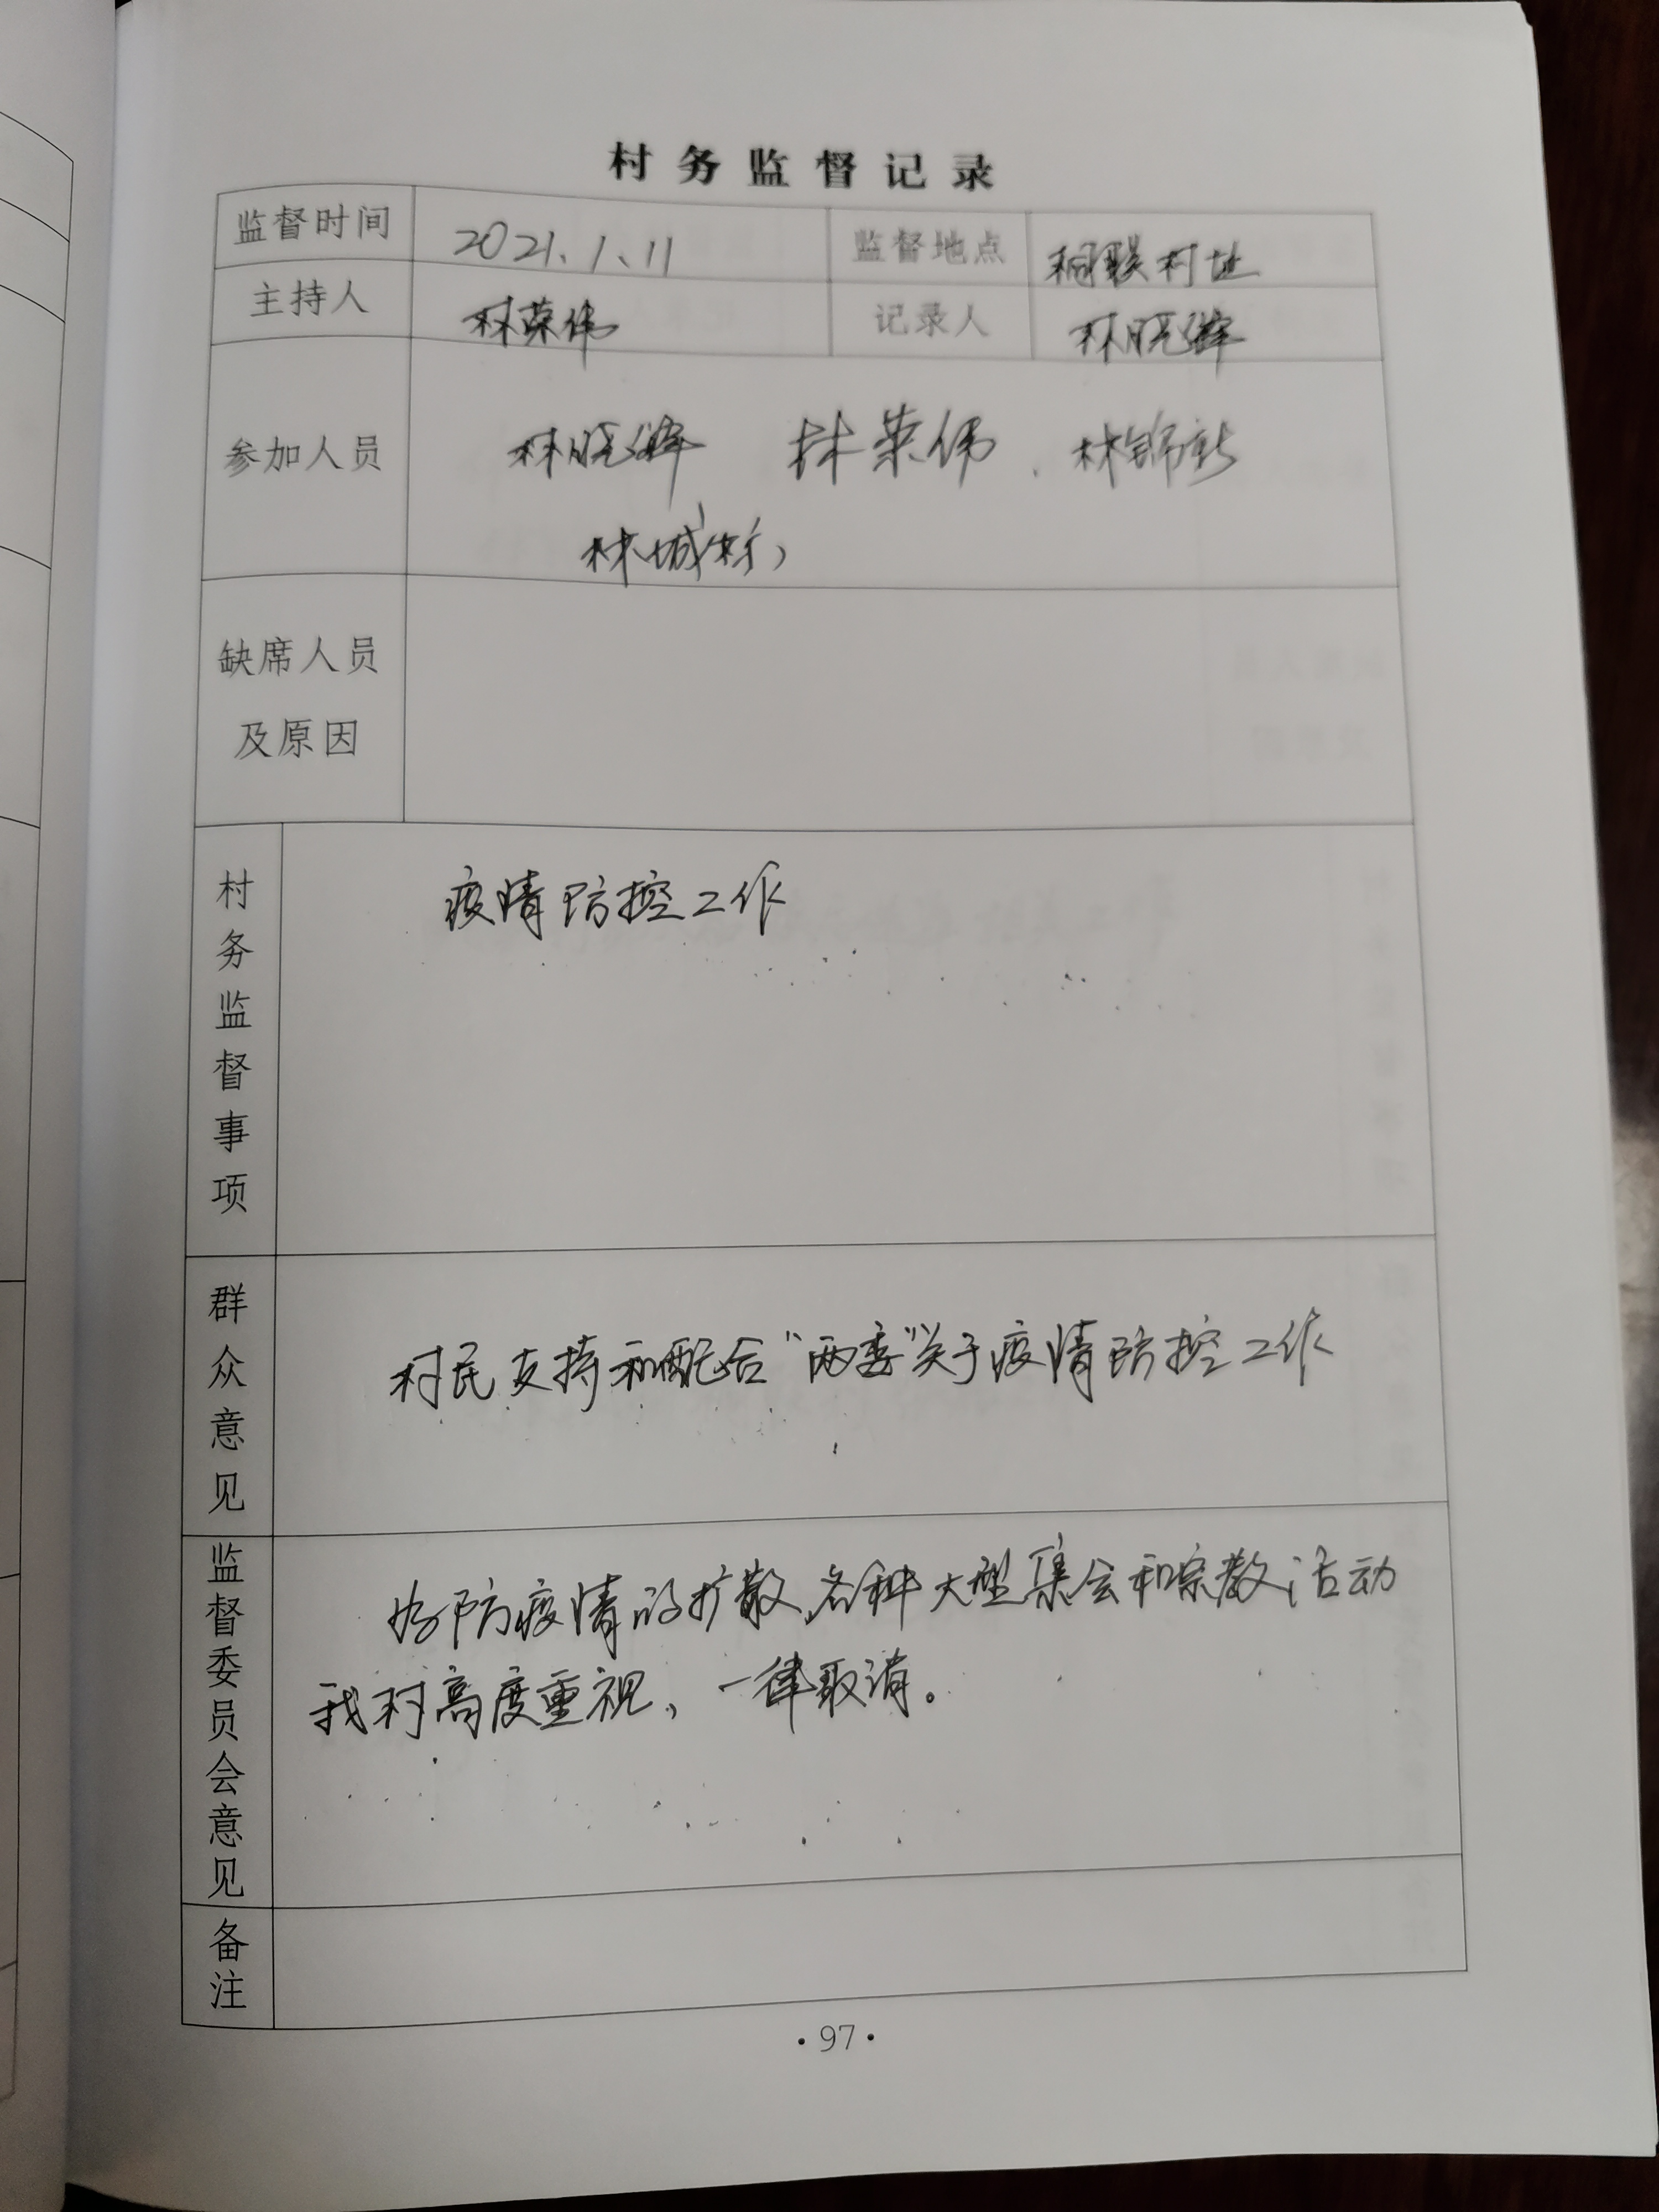 村务监督记录
监督时间 2021、1、11 监督地点 桐联村址
主持人 林荣伟 记录人 林晓锋
参加人员 林晓锋 林荣伟、林锦新
林城标
缺席人员
及原因
村务监督事项 疫情防控工作
群众意见 村民支持和配合“两委”关于疫情防控工作
监督委员会意见 为防疫情的扩散,各种大型集会和宗教活动
我村高度重视,一律取消。
备注
·97·